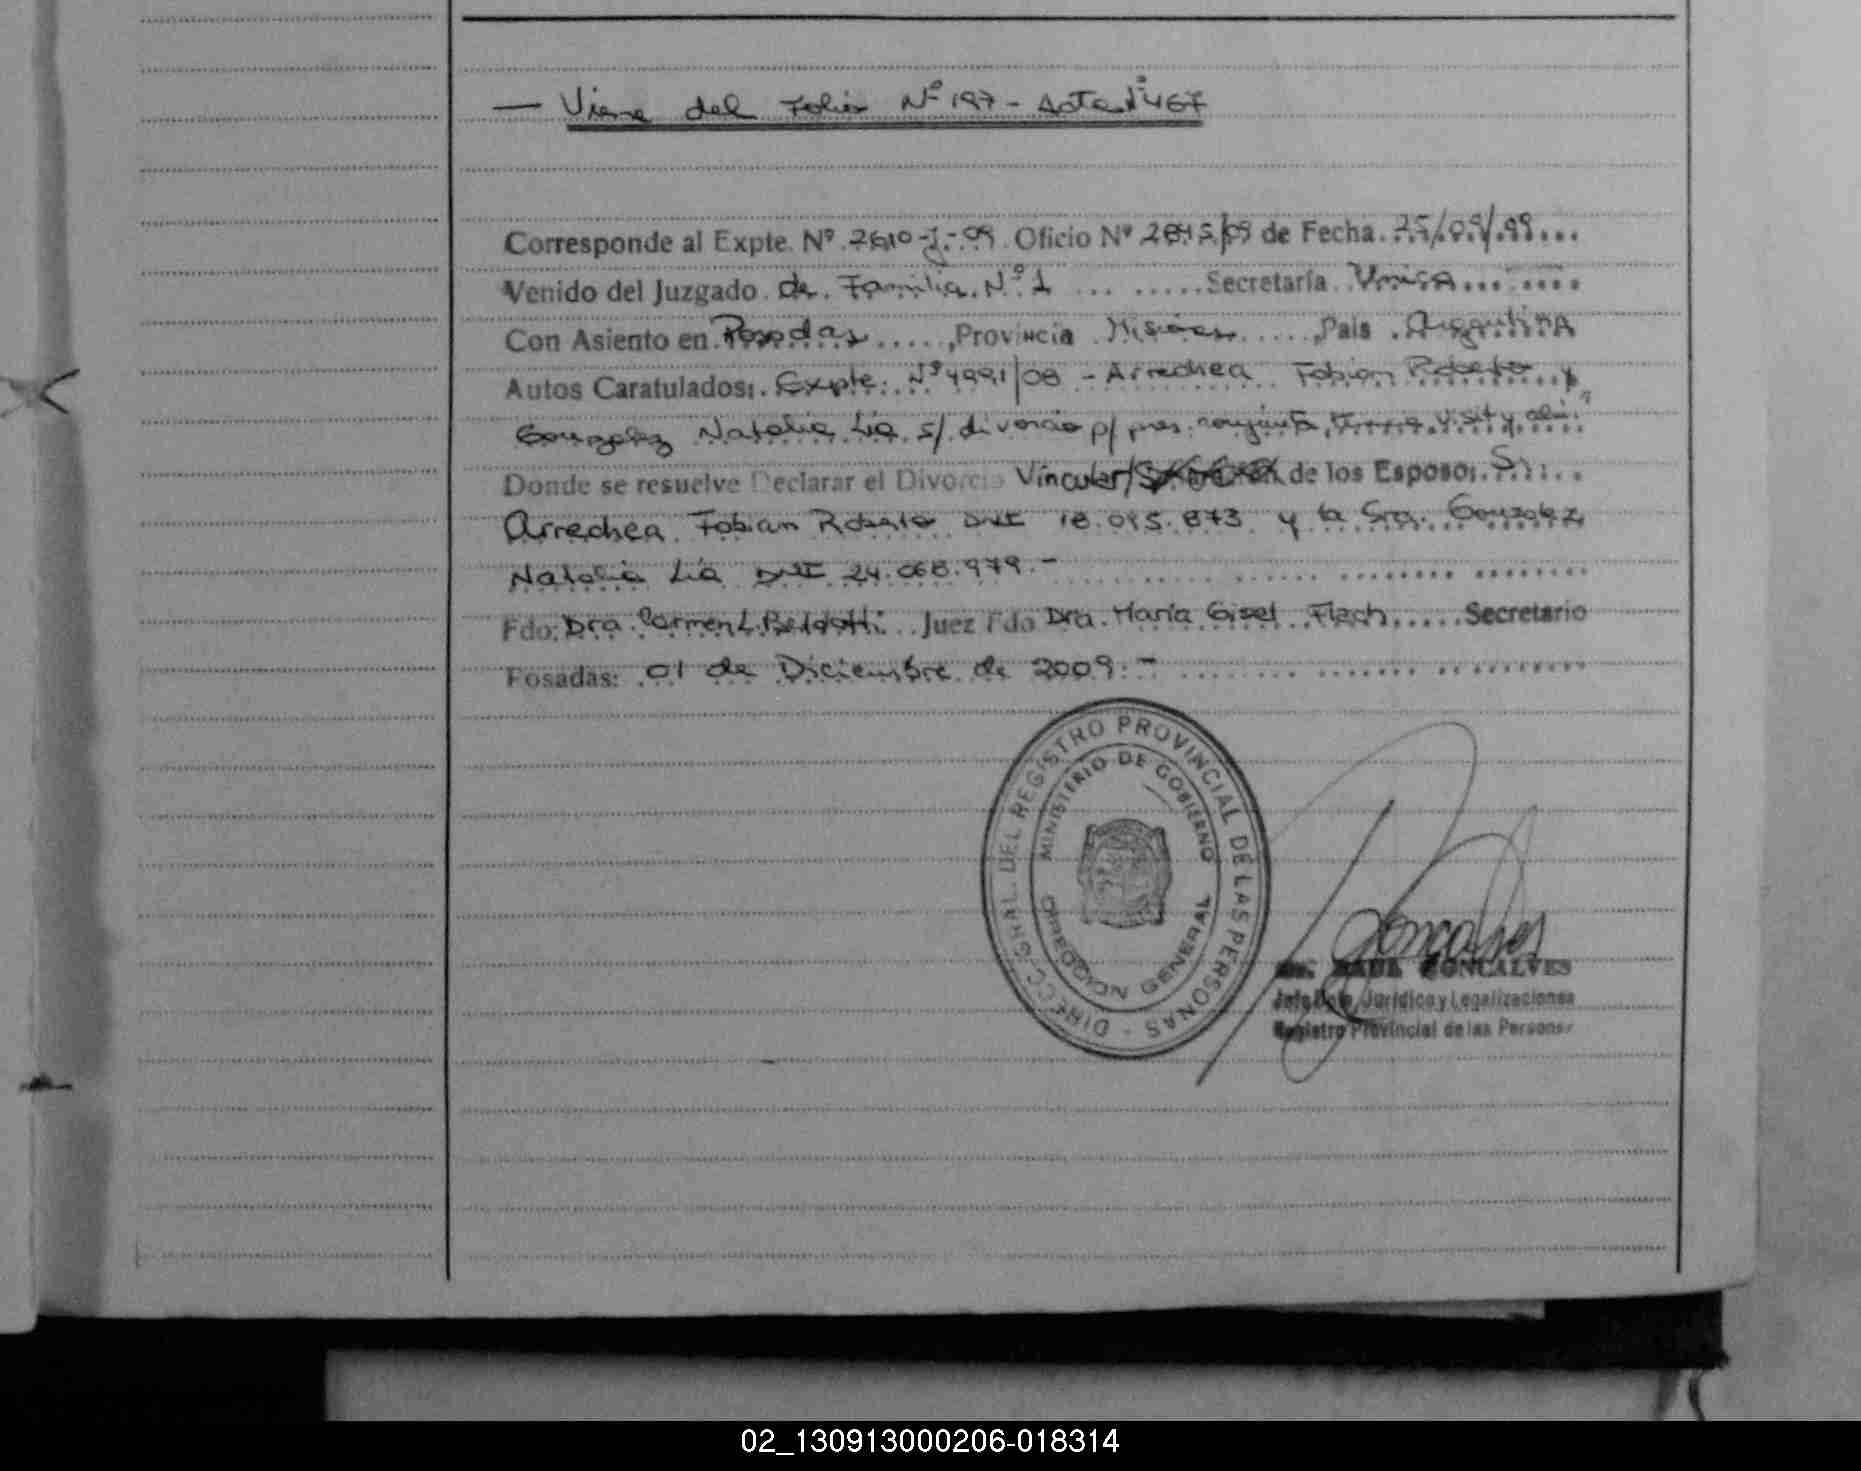 — Viene del Folio Nº 197 - Acta Nº 467
Corresponde al Expte. Nº 2610-J-09 Oficio Nº 2845/09 de Fecha 25/09/09
Venido del Juzgado de Familia Nº 1 Secretaría Unica
Con Asiento en Posadas, Provincia Misiones, País Argentina
Autos Caratulados: Expte. Nº 4991/08 - Arrechea Fabian Roberto y
Gonzalez Natalia Lia s/ divorcio p/ pres. conjunta, visit y alim."
Donde se resuelve Declarar el Divorcio Vincular/ de los Esposo: Sr.
Arrechea Fabian Roberto DNI 18.095.873 y la Sra. Gonzalez
Natalia Lia DNI 24.068.979.-
Fdo: Dra. Carmen L. Juez Fdo Dra. María Gisel Flech Secretario
Posadas: 01 de Diciembre de 2009.-
DIRECC. GRAL. DEL REGISTRO PROVINCIAL DE LAS PERSONAS -
MINISTERIO DE GOBIERNO
DIRECCION GENERAL
Dr. RAUL GONCALVES
Jefe Dpto. Jurídico y Legalizaciones
Registro Provincial de las Personas
02_130913000206-018314